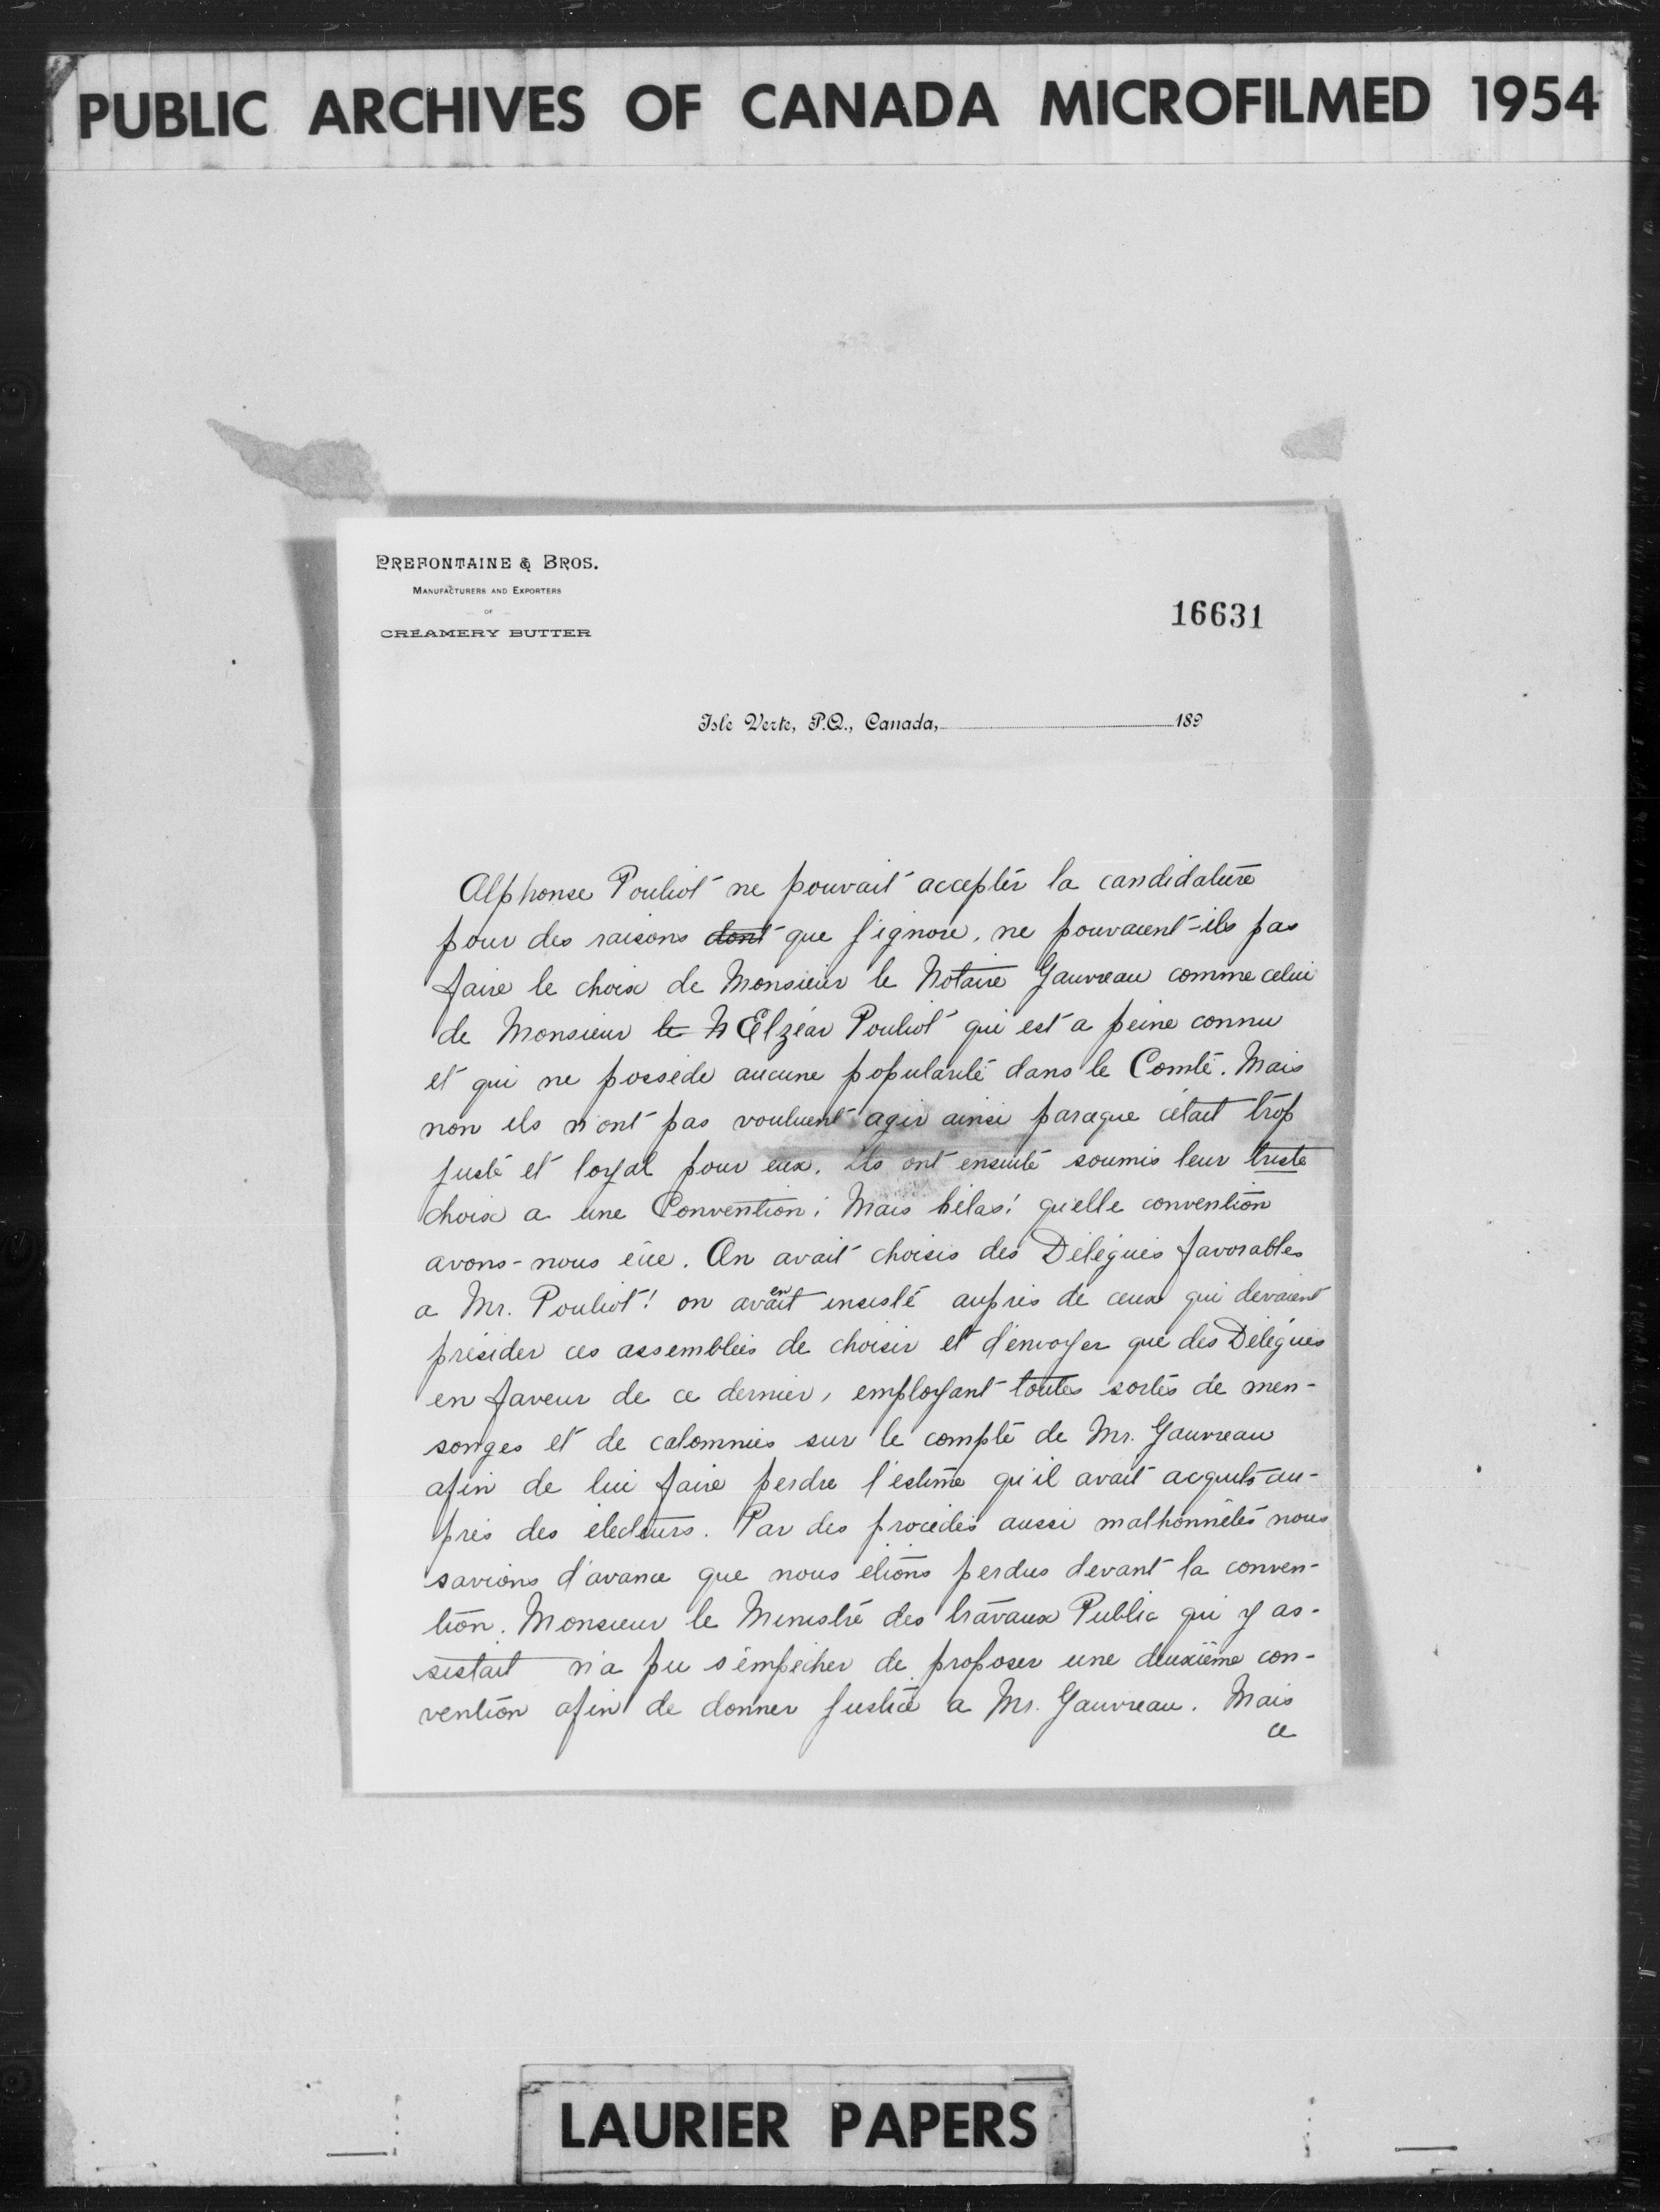 PUBLIC ARCHIVES OF CANADA MICROFILMED 1954
PREFONTAINE & BROS.
MANUFACTURERS AND EXPORTERS
OF
CREAMERY BUTTER
16631
Isle Verte, P.Q., Canada, 189
Alphonse Pouliot ne pouvait accepter la candidature
pour des raisons dont que j'ignore, ne pouvaient-ils pas
faire le choix de Monsieur le Notaire Gauvreau comme celui
de Monsieur le N Elzéar Pouliot qui est a peine connu
et qui ne possède aucune popularité dans le Comté. Mais
non ils n'ont pas vouluent agir ainsi parceque c'était trop
juste et loyal pour eux. Ils ont ensuite soumis leur triste
choix a une Convention; Mais hélas! quelle convention
avons-nous eûe. On avait choisis des Délégués favorables
a Mr. Pouliot! on avait en insisté auprès de ceux qui devaient
présider ces assemblées de choisir et d'envoyer que des Délégués
en faveur de ce dernier, employant toutes sortes de men-
songes et de calomnies sur le compte de Mr. Gauvreau
afin de lui faire perdre l'estime qu'il avait acquits au-
près des électeurs. Par des procédés aussi malhonnêtes nous
savions d'avance que nous étions perdus devant la conven-
tion. Monsieur le Ministre des travaux Public qui y as-
sistait n'a pu s'empêcher de proposer une deuxième con-
vention afin de donner justice a Mr. Gauvreau. Mais
ce
LAURIER PAPERS